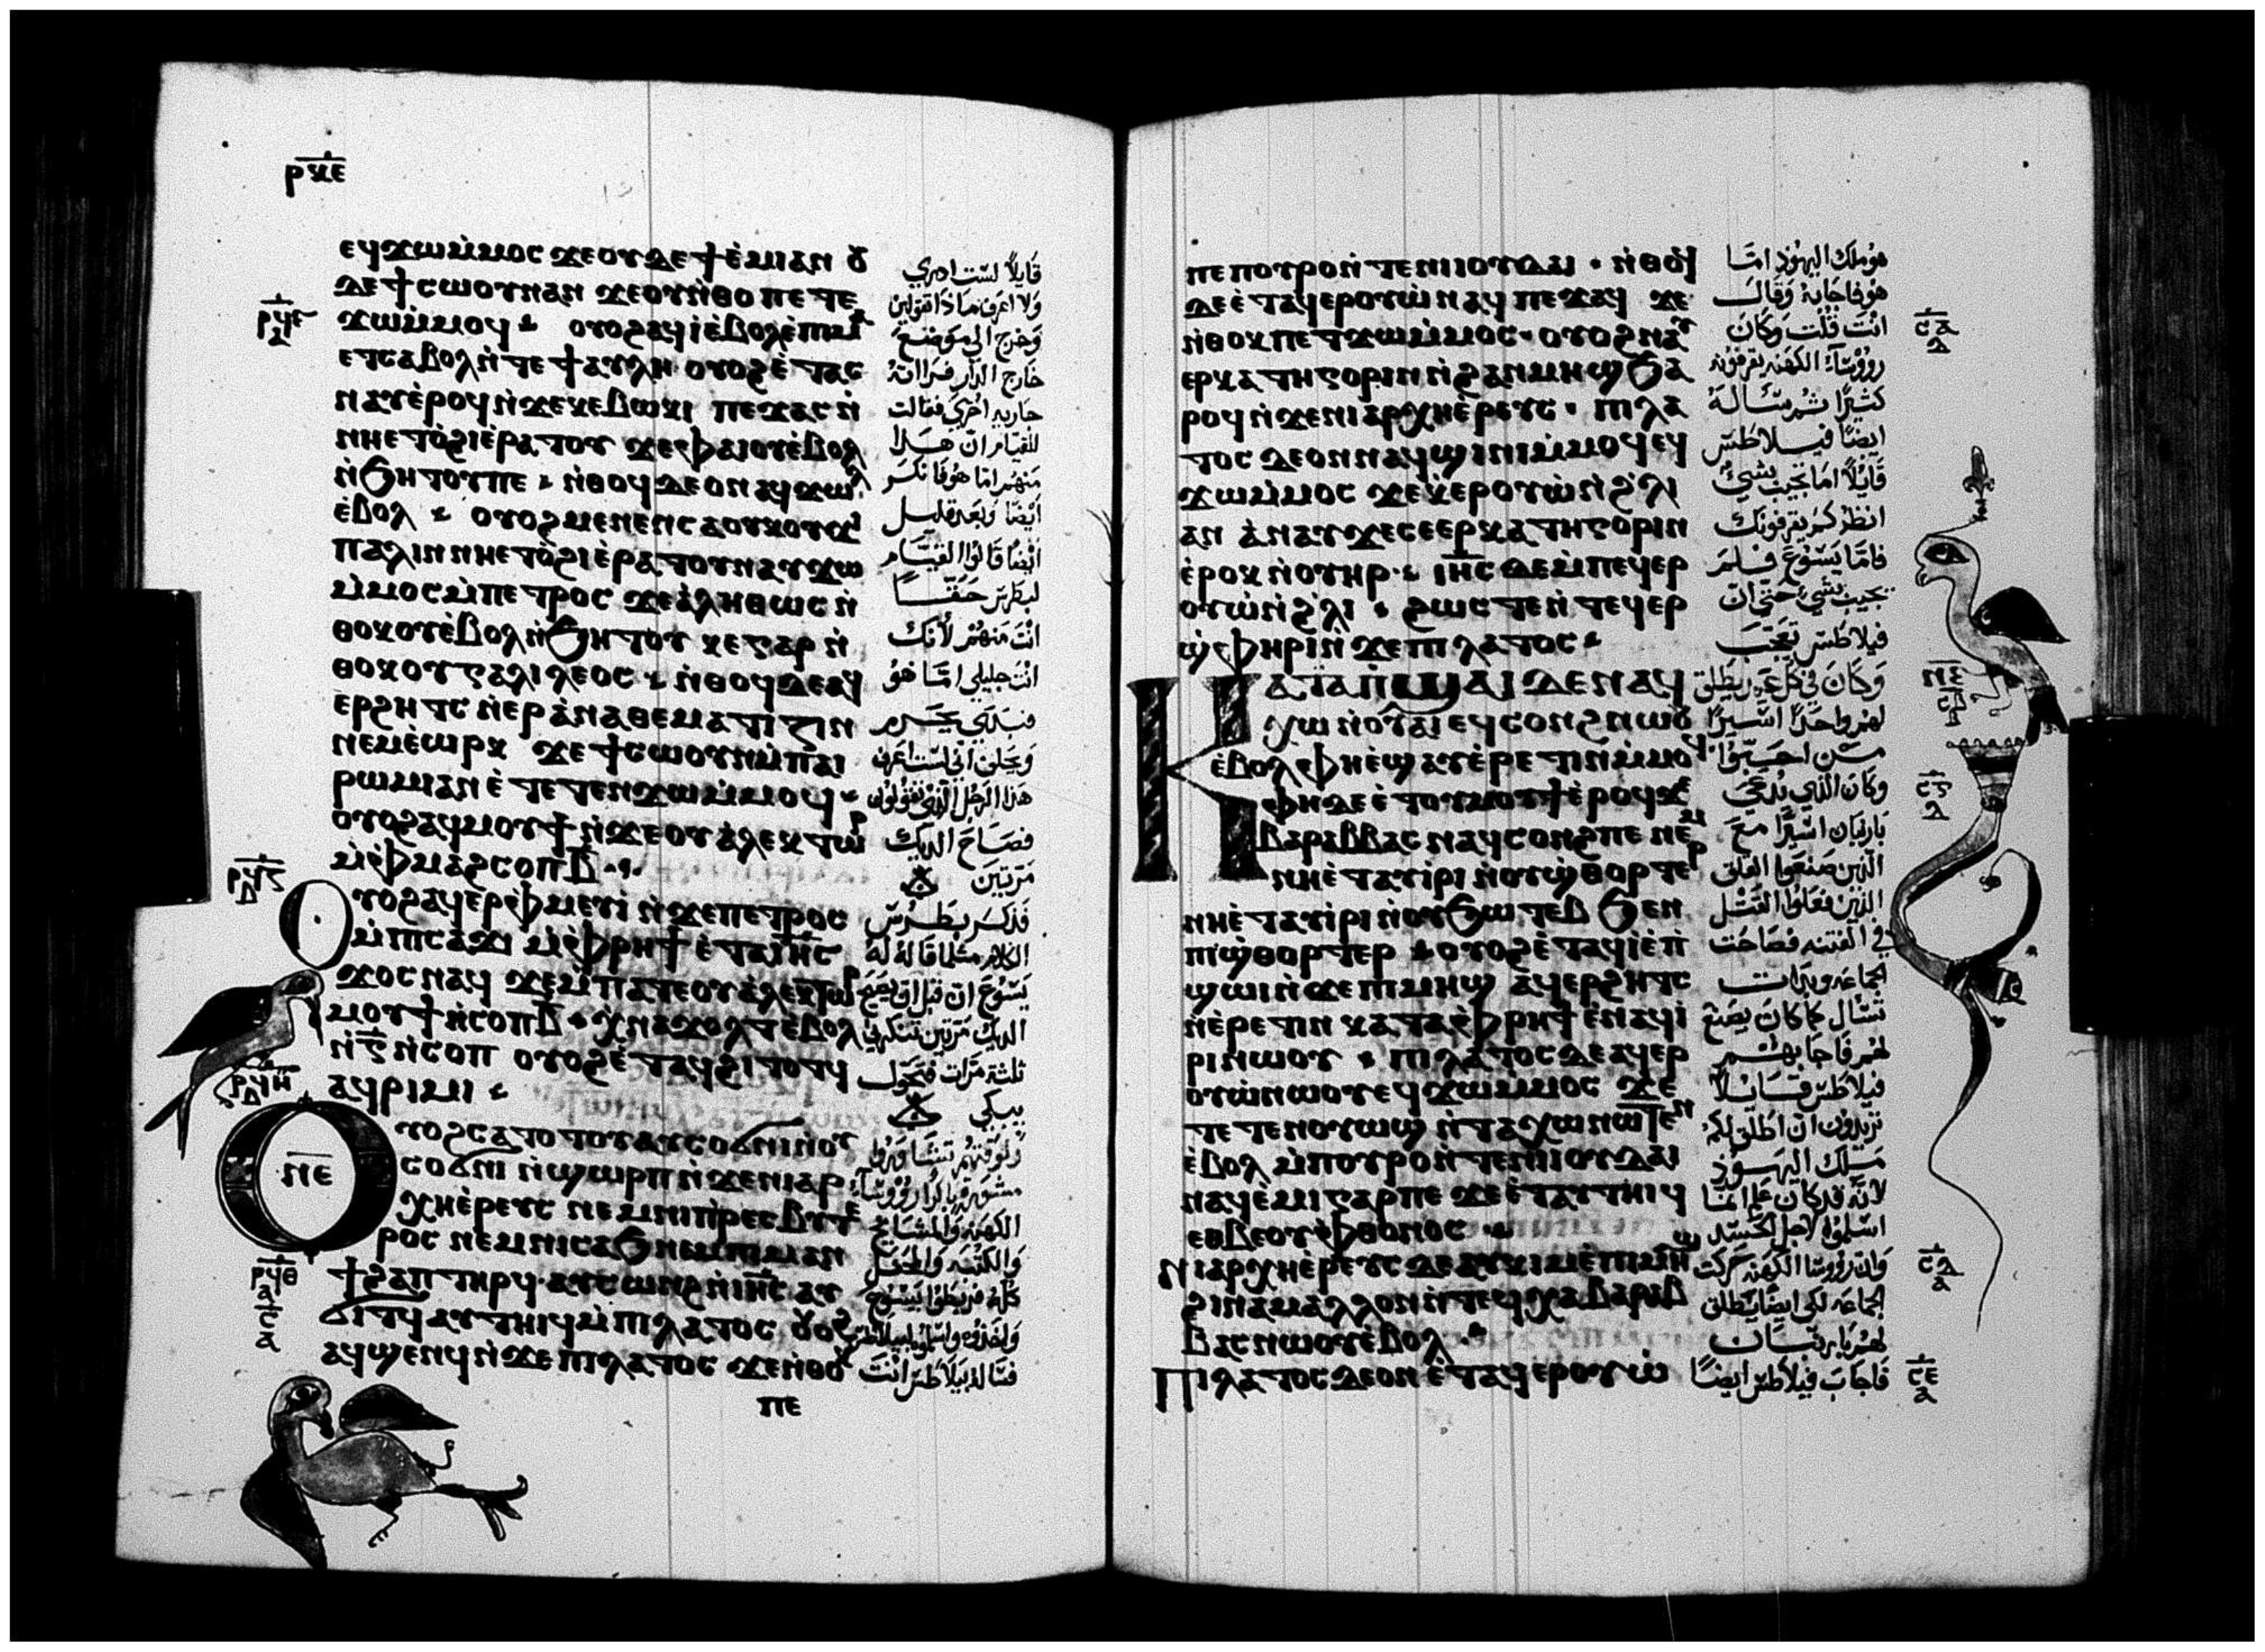 ⲣⲝⲉ
ⲉϥϫⲱⲙ̀ⲙⲟⲥ ϫⲉⲟⲩⲇⲉ ϯⲉ̀ⲙⲓⲁⲛ ⲟⲩ
ⲇⲉ ϯⲥⲱⲟⲩⲛⲁⲛ ϫⲉⲟⲩⲛ̀ⲑⲟ ⲡⲉⲧⲉ
ϫⲱⲙ̀ⲙⲟϥ ⲟⲩⲟϩⲁϥⲓ̀ⲉ̀ⲃⲟⲗⲉ̀ⲡⲓⲙⲁ
ⲉⲧⲥⲁⲃⲟⲗⲛ̀ⲧⲉ ϯⲁⲩⲗⲏ ⲟⲩⲟϩⲉ̀ⲧⲁⲥ
ⲛⲁⲩⲉ̀ⲣⲟϥⲛ̀ϫⲉⲕⲉⲃⲱⲕⲓ ⲡⲉϫⲁⲥⲛ̀
ⲛⲏⲉⲧⲟ̀ϩⲓⲉ̀ⲣⲁⲧⲟⲩ ϫⲉⲫⲁⲓⲟⲩⲉ̀ⲃⲟⲗ
ⲛ̀ϧⲏⲧⲟⲩⲡⲉ ⲛ̀ⲑⲟϥ ⲇⲉⲟⲛⲁϥϫⲱⲗ
ⲉ̀ⲃⲟⲗ ⲟⲩⲟϩⲙⲉⲛⲉⲛⲥⲁⲟⲩⲕⲟⲩϫⲓ
ⲡⲁⲗⲓⲛⲛⲏⲉⲧⲟ̀ϩⲓⲉ̀ⲣⲁⲧⲟⲩⲛⲁⲩϫⲱ
ⲙ̀ⲙⲟⲥⲙ̀ⲡⲉⲧⲣⲟⲥ ϫⲉⲁ̀ⲗⲏⲑⲱⲥ ⲛ̀
ⲑⲟⲕⲟⲩⲉ̀ⲃⲟⲗⲛ̀ϧⲏⲧⲟⲩ ⲕⲉⲅⲁⲣ ⲛ̀
ⲑⲟⲕⲟⲩⲅⲁⲗⲓⲗⲉⲟⲥ ⲛ̀ⲑⲟϥⲇⲉⲁϥ
ⲉⲣϩⲏⲧⲥ ⲛ̀ⲉⲣⲁ̀ⲛⲁⲑⲉⲙⲁⲧⲓⲍⲓⲛ
ⲛⲉⲙⲉ̀ⲱⲣⲕ ϫⲉ ϯⲥⲱⲟⲩⲛⲙ̀ⲡⲁⲓ
ⲣⲱⲙⲓⲁⲛ ⲉ̀ⲧⲉⲧⲉⲛϫⲱⲙ̀ⲙⲟϥ
ⲟⲩⲟϩⲁϥⲙⲟⲩϯ ⲛ̀ϫⲉⲟⲩⲁ̀ⲗⲉⲕⲧⲱⲣ
ⲙ̀ⲫⲙⲁϩⲥⲟⲡⲃ̅
ⲟⲩⲟϩⲁϥⲉⲣⲫⲙⲉⲩⲓ̀ ⲛ̀ϫⲉⲡⲉⲧⲣⲟⲥ
ⲙ̀ⲡⲓⲥⲁϫⲓ ⲙ̀ⲫⲣⲏϯ ⲉ̀ⲧⲁⲓⲏ̅ⲥ̅
ϫⲟⲥ ⲛⲁϥ ϫⲉⲙ̀ⲡⲁⲧⲉⲟⲩⲁ̀ⲗⲉⲕⲧⲱⲣ
ⲙⲟⲩϯ ⲛ̀ⲥⲟⲡⲃ̅ ⲭ̀ⲛⲁϫⲟⲗⲧⲉ̀ⲃⲟⲗ
ⲛ̀ⲅ̅ ⲛ̀ⲥⲟⲡ ⲟⲩⲟϩⲉ̀ⲧⲁϥϩⲓⲧⲟⲧϥ
ⲁϥⲣⲓⲙⲓ
ⲟⲩⲟϩⲥⲁⲧⲟⲧⲟⲩⲁⲩⲥⲟϭⲛⲓⲛ̀ⲟⲩ
ⲛⲉ
ⲥⲟϭⲛⲓ ⲛ̀ϣⲱⲣⲡ ⲛ̀ϫⲉⲛⲓⲁⲣ
ⲭⲏⲉ̀ⲣⲉⲩⲥ ⲛⲉⲙⲛⲓⲡ̀ⲣⲉⲥⲃⲩⲧⲉ
ⲣⲟⲥ ⲛⲉⲙⲛⲓⲥⲁϧ ⲛⲉⲙⲡⲓⲙⲁⲛ
ϯϩⲁⲡ ⲧⲏⲣϥ ⲁⲩⲥⲱⲛϩⲛ̀ⲓⲏ̅ⲥ̅ ⲁⲩ
ϭⲓⲧϥ ⲁⲩⲧⲏⲓϥⲙ̀ⲡⲓⲗⲁⲧⲟⲥ ⲟⲩⲟϩ
ⲁϥϣⲉⲛϥ ⲛ̀ϫⲉⲡⲓⲗⲁⲧⲟⲥ ϫⲉⲛ̀ⲑⲟⲕ
ⲡⲉ
قايلا لست ادري
ولا اعرف ماذا تقولين
وخرج الى موضع
خارج الدار فراته
جاريه اخرى فقالت
للقيام ان هذا
منهم اما هو فانكر
ايضا وبعد قليل
ايضا قالوا القيام
لبطرس حقا
انت منهم لانك
انت جليلي اما هو
فبدى يحرم
ويحلف اني لست اعرف
هذا الرجل الذي تقولون
فصاح الديك
مرتين
فذكر بطرس
الكلام مثلما قال له
يسوع ان قبل ان يصيح
الديك مرتين تنكرني
ثلثة مرات فتحول
يبكي
الكهنه والمشايخ
والكتبه والمحفل
كله فربطوا يسوع
فساله بيلاطس انت
ⲡⲉ ⲡⲟⲩⲣⲟⲛ̀ⲧⲉⲛⲓⲓⲟⲩⲇⲁⲓ ⲛ̀ⲑⲟϥ
ⲇⲉⲉ̀ⲧⲁϥⲉⲣⲟⲩⲱ̀ ⲛⲁϥ ⲡⲉϫⲁϥ ϫⲉ
ⲛ̀ⲑⲟⲕⲡⲉⲧϫⲱⲙ̀ⲙⲟⲥ ⲟⲩⲟϩⲛⲁⲩ
ⲉⲣⲕⲁⲧⲏⲅⲟⲣⲓⲛ ⲛ̀ϩⲁⲛⲙⲏϣ ϧⲁ
ⲣⲟϥⲛ̀ϫⲉⲛⲓⲁⲣⲭⲏⲉ̀ⲣⲉⲩⲥ ⲡⲓⲗⲁ
ⲧⲟⲥ ⲇⲉⲟⲛⲛⲁϥϣⲓⲛⲓⲙ̀ⲙⲟϥⲉϥ
ϫⲱⲙ̀ⲙⲟⲥ ϫⲉⲕ̀ⲉⲣⲟⲩⲱ̀ⲛ̀ϩ̀ⲗⲓ
ⲁⲛ ⲁ̀ⲛⲁⲩϫⲉⲥⲉⲉⲣⲕⲁⲧⲏⲅⲟⲣⲓⲛ
ⲉ̀ⲣⲟⲕ ⲛ̀ⲟⲩⲏⲣ ⲓⲏ̅ⲥ̅ ⲇⲉⲙ̀ⲡⲉϥⲉⲣ
ⲟⲩⲱ̀ⲛ̀ϩ̀ⲗⲓ ϩⲱⲥⲧⲉⲛ̀ⲧⲉϥⲉⲣ
ϣ̀ⲫⲏⲣⲓⲛ̀ϫⲉⲡⲓⲗⲁⲧⲟⲥ
ⲕⲁⲧⲁⲡϣⲁⲓ ⲇⲉⲛⲁϥ
ⲭⲱⲛ̀ⲟⲩⲁⲓⲉϥⲥⲟⲛϩⲛⲱⲟⲩ
ⲉ̀ⲃⲟⲗⲫⲏⲉ̀ϣⲁⲩⲉ̀ⲣⲉⲧⲓⲛⲙ̀ⲙⲟϥ
ⲫⲏⲇⲉⲉ̀ⲧⲟⲩⲙⲟⲩϯⲉ̀ⲣⲟϥϫⲉ
ⲃⲁⲣⲁⲃⲃⲁⲥ ⲛⲁϥⲥⲟⲛϩⲡⲉ ⲛⲉⲙ
ⲛⲏⲉ̀ⲧⲁⲩⲓ̀ⲣⲓ ⲛ̀ⲟⲩϣ̀ⲑⲟⲣⲧⲉⲣ
ⲛⲏⲉ̀ⲧⲁⲩⲓ̀ⲣⲓ ⲛ̀ⲟⲩϧⲱⲧⲉⲃ ϧⲉⲛ
ⲡⲓϣ̀ⲑⲟⲣⲧⲉⲣ ⲟⲩⲟϩⲉ̀ⲧⲁϥⲓ̀ⲉ̀ⲡ̀
ϣⲱⲓⲛ̀ϫⲉⲡⲓⲙⲏϣ ⲁϥⲉⲣϩⲏⲧⲥ
ⲛ̀ⲉ̀ⲣⲉⲧⲓⲛ ⲕⲁⲧⲁⲫⲣⲏϯ ⲉⲛⲁϥⲓ̀
ⲣⲓⲛⲱⲟⲩ ⲡⲓⲗⲁⲧⲟⲥⲇⲉⲁϥⲉⲣ
ⲟⲩⲱ̀ⲛⲱⲟⲩⲉϥϫⲱⲙ̀ⲙⲟⲥ ϫⲉ
ⲧⲉⲧⲉⲛⲟⲩⲱϣ ⲛ̀ⲧⲁⲭⲱⲛⲱⲧⲉⲛ
ⲉ̀ⲃⲟⲗ ⲙ̀ⲡⲟⲩⲣⲟⲛ̀ⲧⲉⲛⲓⲓⲟⲩⲇⲁⲓ
ⲛⲁϥⲉ̀ⲙⲓⲅⲁⲣⲡⲉ ϫⲉⲉ̀ⲧⲁⲩⲧⲏⲓϥ
ⲉⲑⲃⲉⲟⲩⲫⲑⲟⲛⲟⲥ
ⲛⲓⲁⲣⲭⲏⲉ̀ⲣⲉⲩⲥ ⲇⲉⲁⲩⲕⲓⲙⲉ̀ⲡⲓⲙⲏϣ
ϩⲓⲛⲁⲙⲁⲗⲗⲟⲛⲛ̀ⲧⲉϥⲭⲁⲃⲁⲣⲁⲃ
ⲃⲁⲥ ⲛⲱⲟⲩⲉ̀ⲃⲟⲗ
ⲡⲓⲗⲁⲧⲟⲥⲇⲉⲟⲛ ⲉ̀ⲧⲁϥⲉⲣⲟⲩⲱ̀
هو ملك اليهود اما
هو فاجابه وقال
انت قلت وكان
رووسا الكهنه يقرفونه
كثيرا ثم ساله
ايضا فيلاطس
قايلا اما تجيب بشي
انظر كم يقرفونك
فاما يسوع فلم
يجيب بشي حتى ان
فيلاطس تعجب
وكان في كل عيد يطلق
لهم واحدا اسيرا
وكان الذي يدعى
بارنبان اسيرا مع
الذين صنعوا القلق
الذين فعلوا القتل
في الفتنه فصاحت
الجماعه وبدات
تسال كما كان يصنع
لهم فاجابهم
فيلاطس قايلا
تريدون ان اطلق لكم
ملك اليهود
فاجاب فيلاطس ايضا